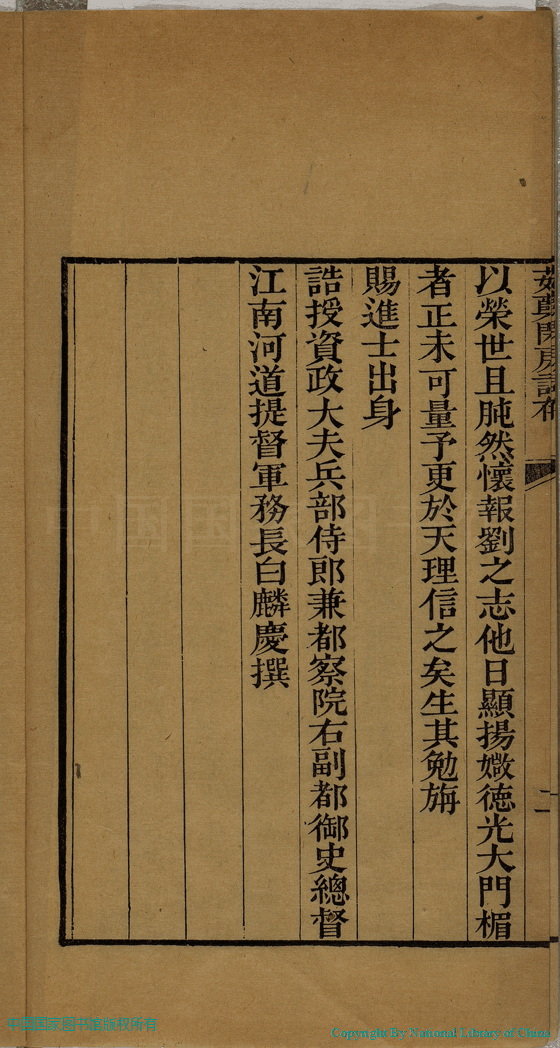 以榮世且肫然懷報劉之志他日顯揚媺徳光大門楣
者正未可量予更於天理信之矣生其勉旃
賜進士出身
誥授資政大夫兵部侍郎兼都察院右副都御史總督
江南河道提督軍務長白麟慶撰
二
中国国家图书馆版权所有
Copyright By National Library of China